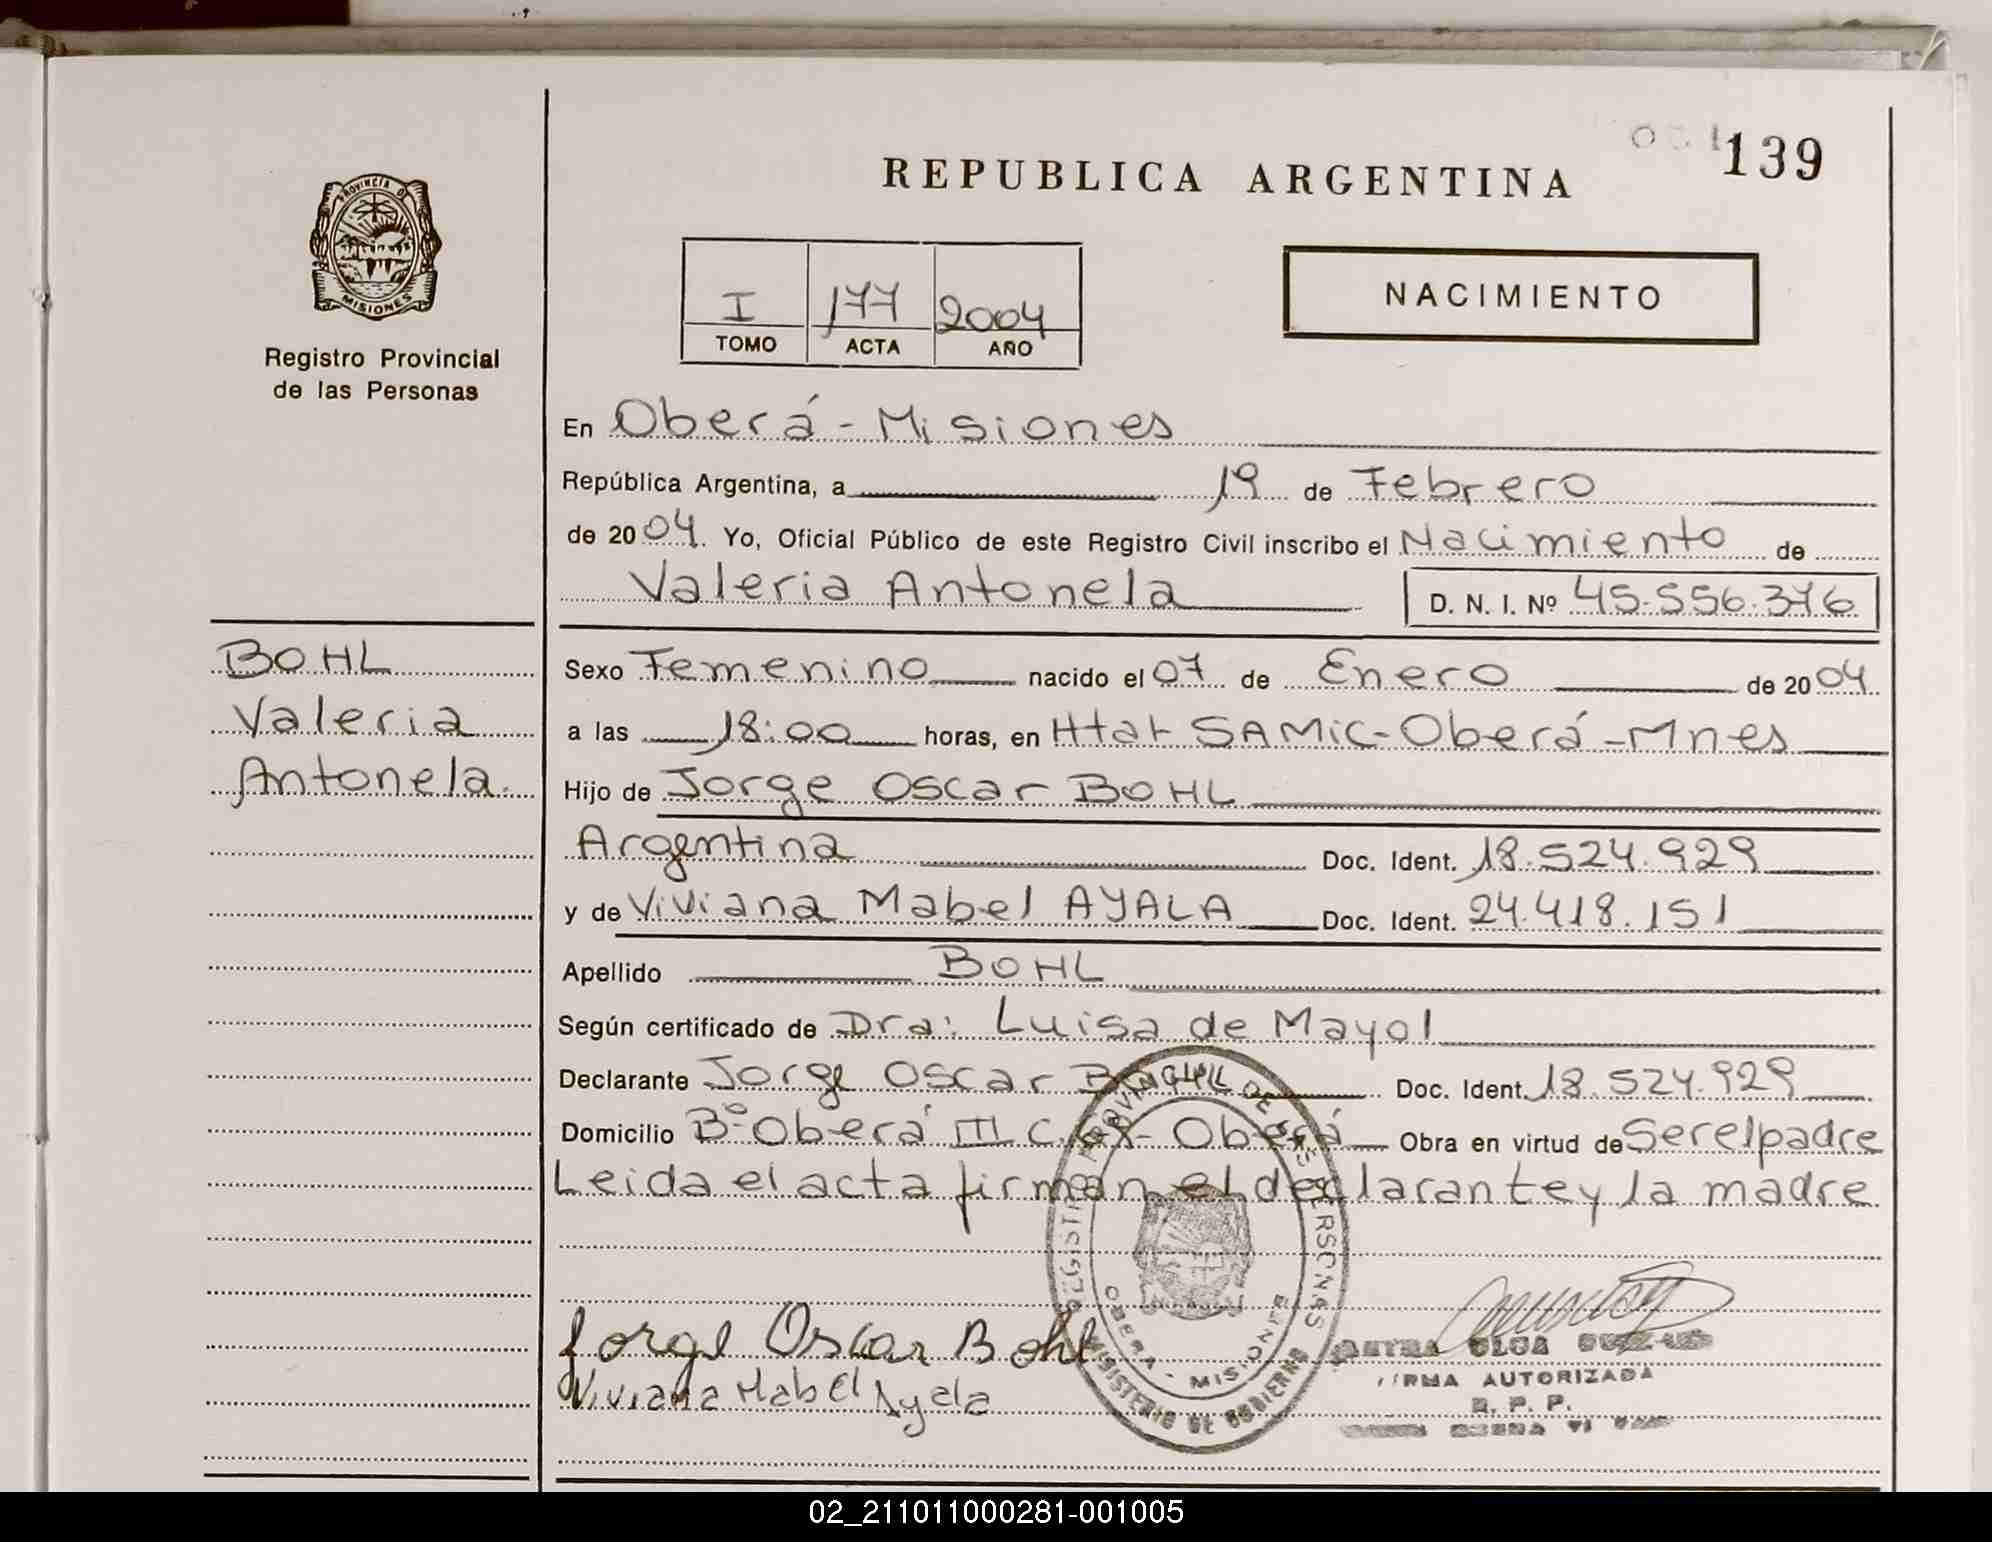 139
REPUBLICA ARGENTINA
PROVINCIA DE
MISIONES
Registro Provincial
de las Personas
I 177 2004
TOMO ACTA AÑO
NACIMIENTO
En Oberá - Misiones
República Argentina, a 19 de Febrero
de 2004. Yo, Oficial Público de este Registro Civil inscribo el Nacimiento de
Valeria Antonela D. N. I. Nº 45.556.376
BOHL
Valeria
Antonela.
Sexo Femenino nacido el 07 de Enero de 2004
a las 18:00 horas, en Htal SAMIC-Oberá-Mnes
Hijo de Jorge Oscar BOHL
Argentina Doc. Ident. 18.524.929
y de Viviana Mabel AYALA Doc. Ident. 24.418.151
Apellido BOHL
Según certificado de Dra: Luisa de Mayol
Declarante Jorge Oscar Doc. Ident. 18.524.929
Domicilio Bº Oberá III C. - Oberá Obra en virtud de Ser el padre
Leida el acta firman el declarante y la madre
REGISTRO PROVINCIAL DE LAS PERSONAS
OBERA - MISIONES
MINISTERIO DE GOBIERNO
Jorge Oscar Bohl
Viviana Mabel Ayala
OLGA
FIRMA AUTORIZADA
R. P. P.
02_211011000281-001005